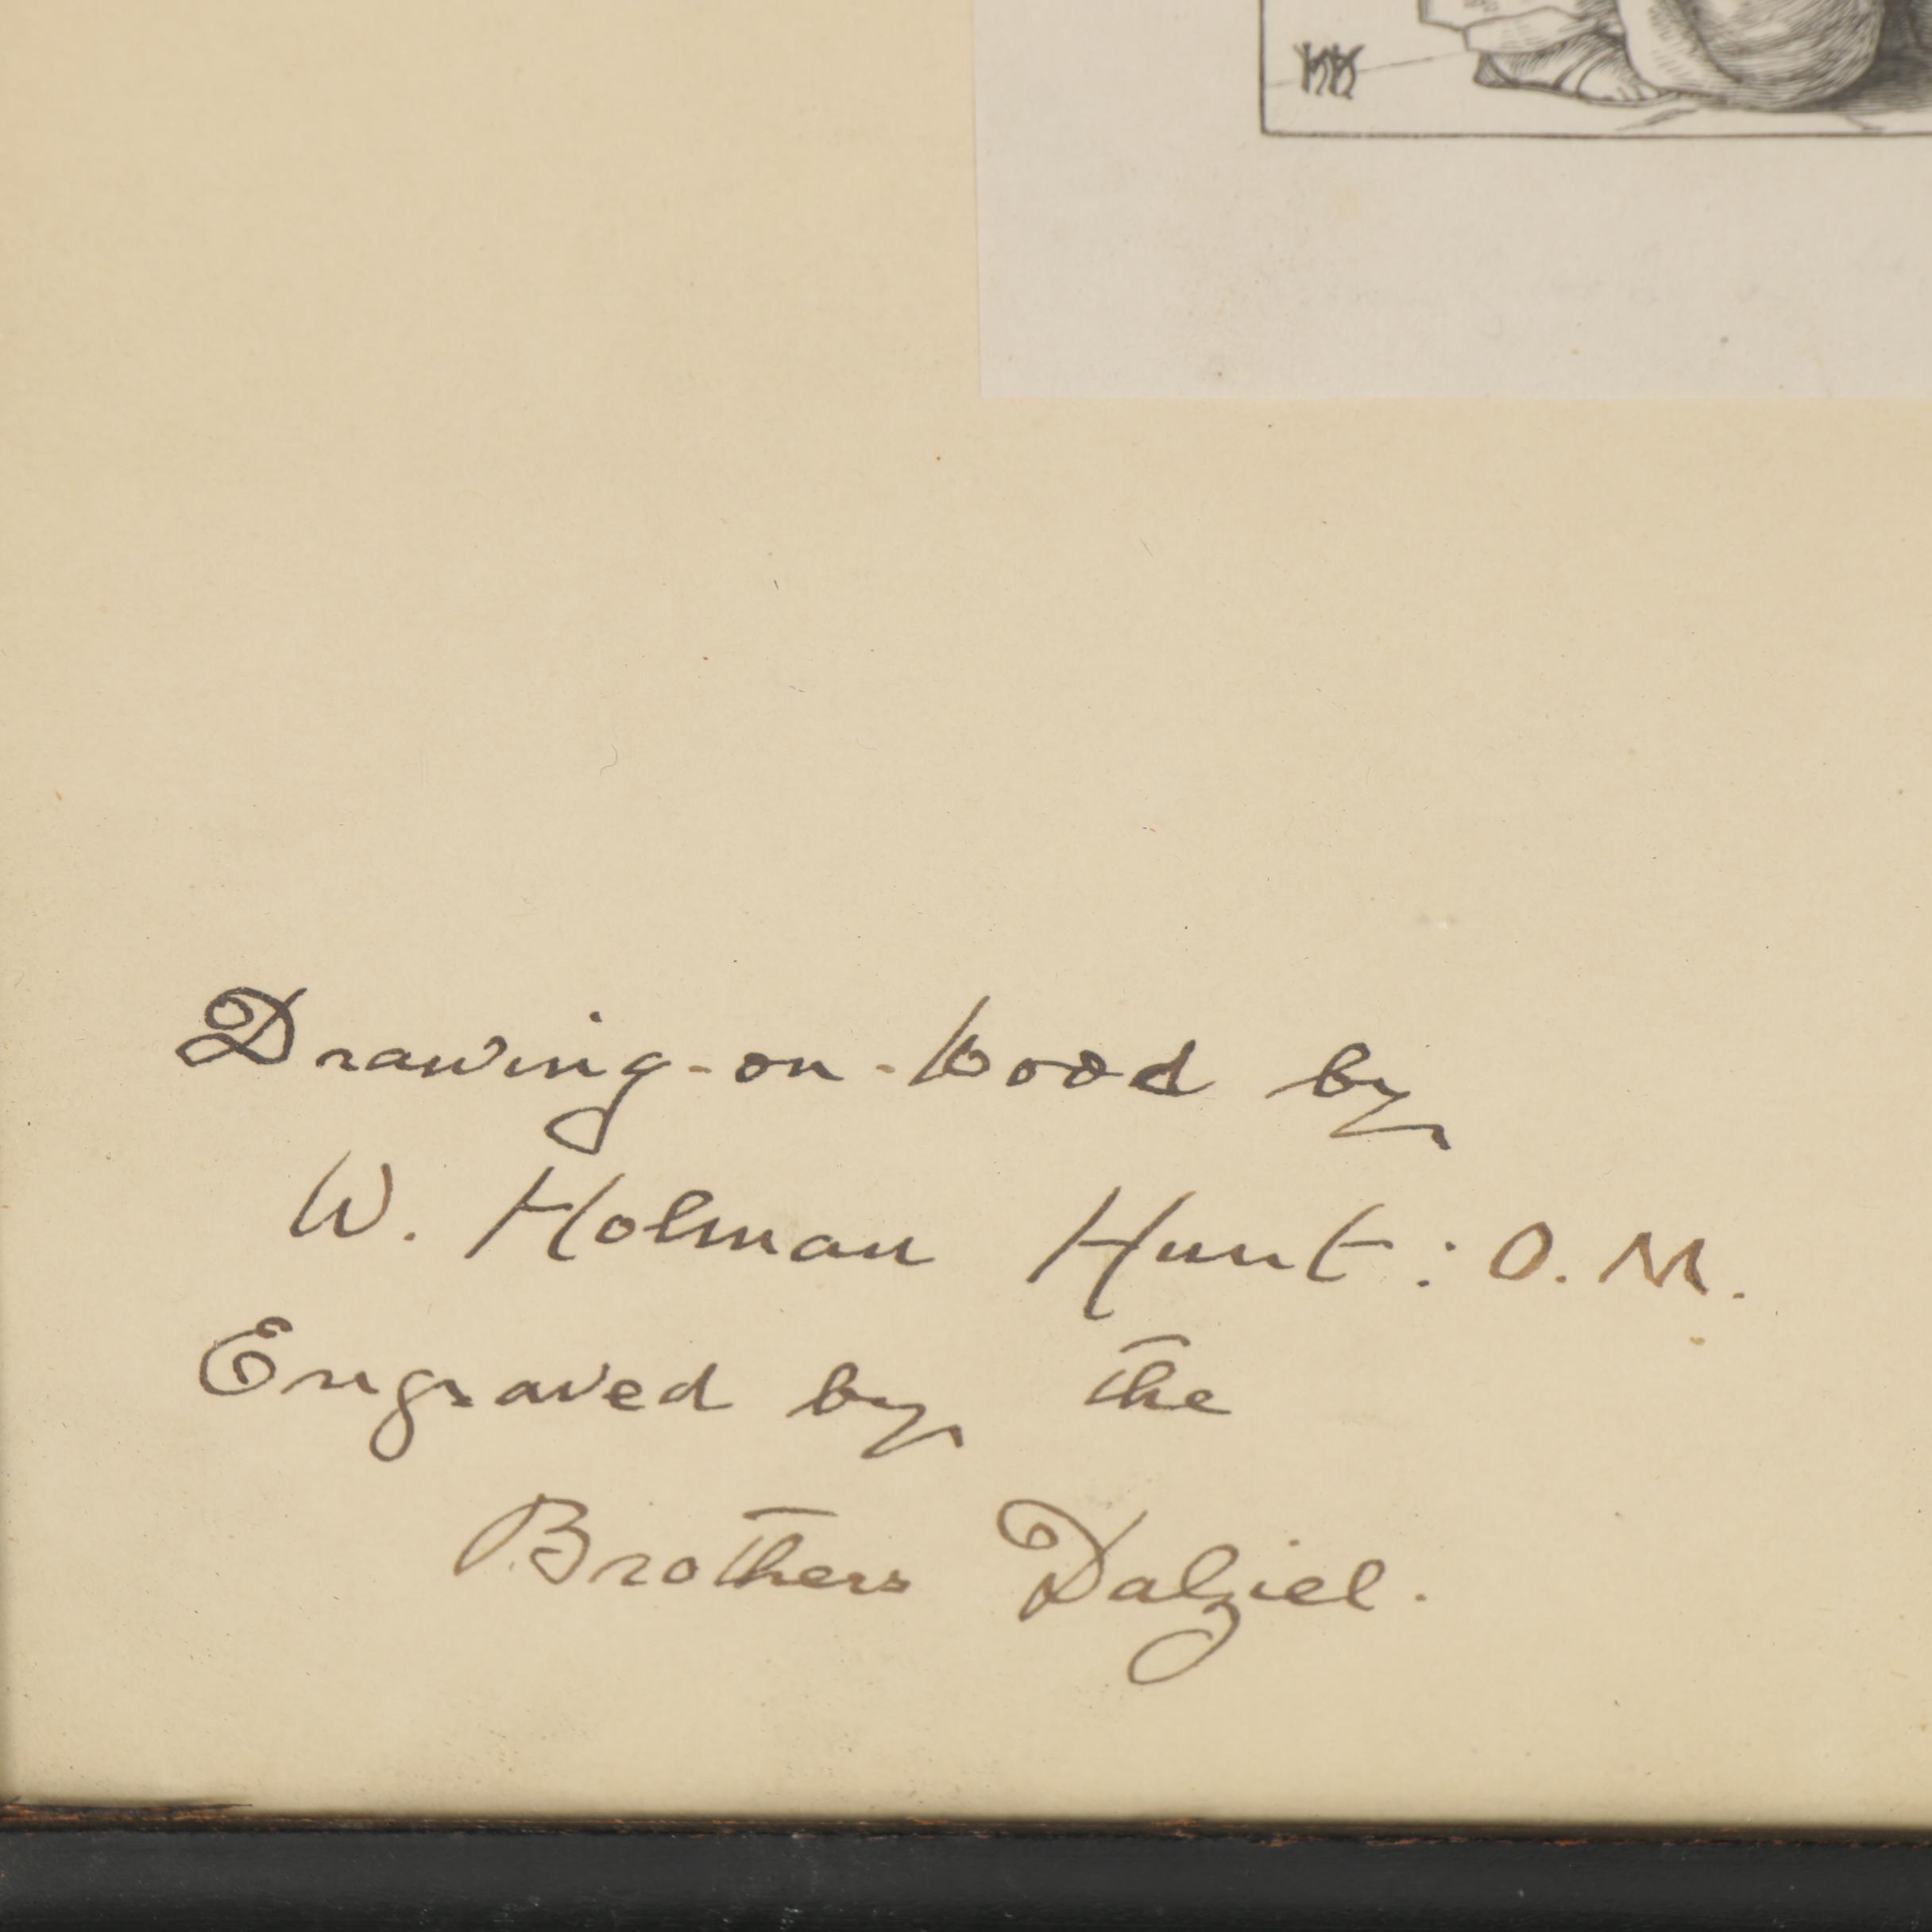 Drawing-on-wood by
W. Holman Hunt: O. M.
Engraved by the
Brothers Dalziel.